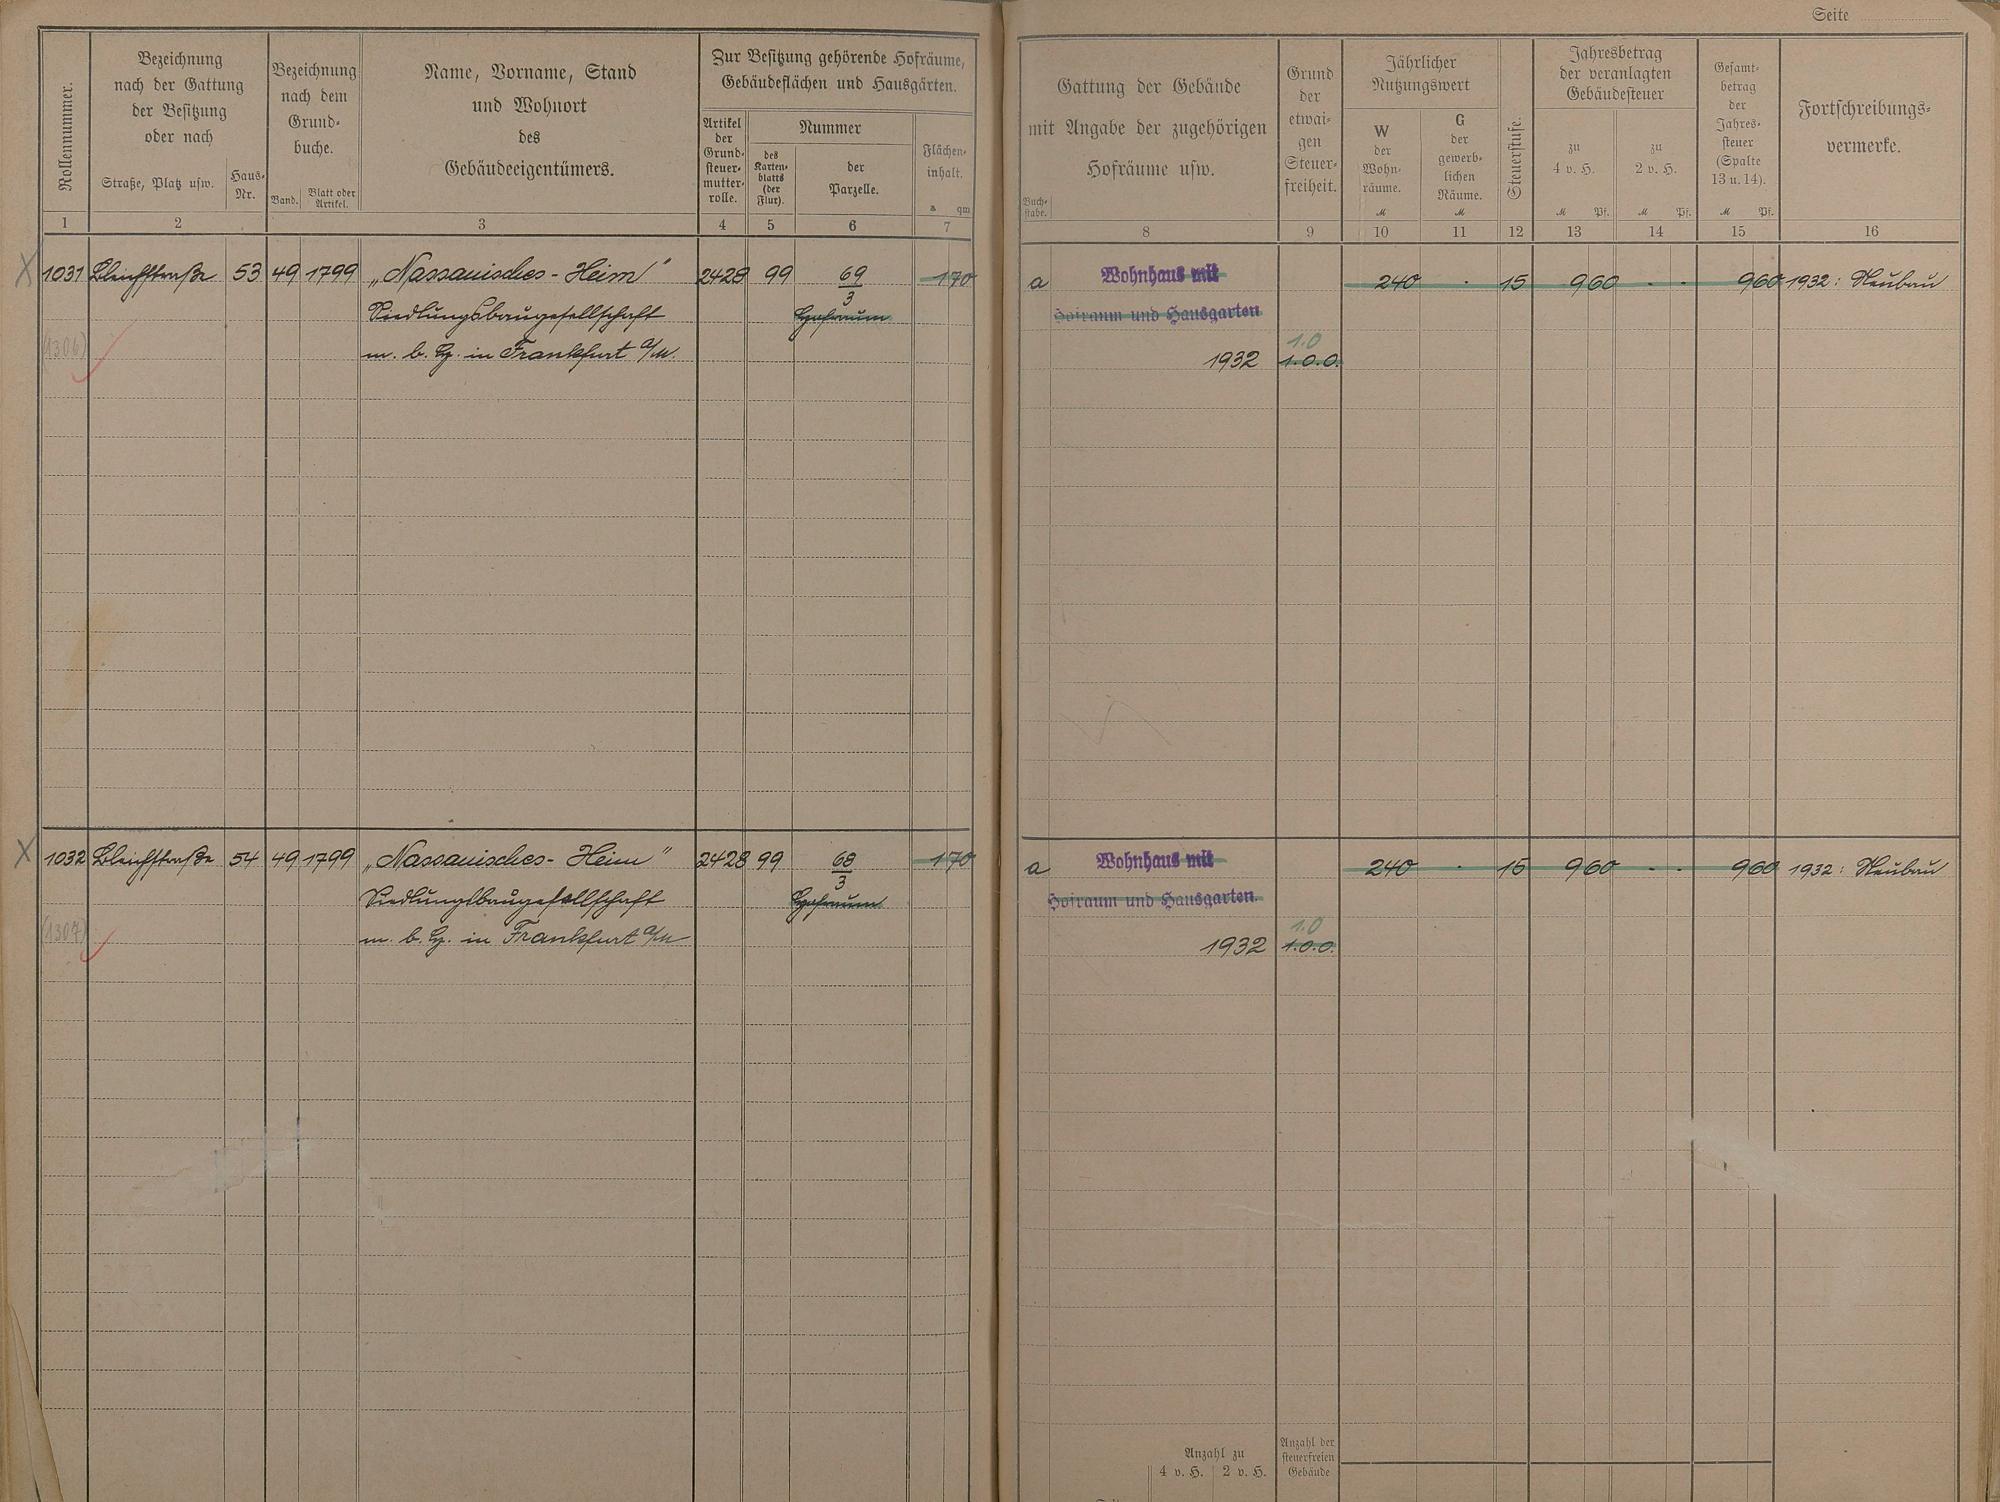 Seite
Rollennummer.
Bezeichnung
nach der Gattung
der Besitzung
oder nach
Straße, Platz usw.
Haus-
Nr.
Bezeichnung
nach dem
Grund-
buche.
Band.
Blatt oder
Artikel.
Name, Vorname, Stand
und Wohnort
des
Gebäudeeigentümers.
Zur Besitzung gehörende Hofräume,
Gebäudeflächen und Hausgärten.
Artikel
der
Grund-
steuer-
mutter-
rolle.
Nummer
des
Karten-
blatts
(der
Flur).
der
Parzelle.
Flächen-
inhalt.
a qm
Gattung der Gebäude
mit Angabe der zugehörigen
Hofräume usw.
Buch-
stabe.
Grund
der
etwai-
gen
Steuer-
freiheit.
Jährlicher
Nutzungswert
W
der
Wohn-
räume.
M
G
der
gewerb-
lichen
Räume.
M
Steuerstufe.
Jahresbetrag
der veranlagten
Gebäudesteuer
zu
4 v. H.
M Pf.
zu
2 v. H.
M Pf.
Gesamt-
betrag
der
Jahres-
steuer
(Spalte
13 u. 14).
M Pf.
Fortschreibungs-
vermerke.
1 2 3 4 5 6 7 8 9 10 11 12 13 14 15 16
X 1031 Bleichstraße 53 49 1799 „Nassauisches-Heim" 2428 99 69/3 170 a Wohnhaus mit 240 · 15 960 - - 960 1932: Neubau
Siedlungsbaugesellschaft Hofraum Hofraum und Hausgarten
(1306) m. b. H. in Frankfurt a/M. 1.0
1932 1.0.0.
X 1032 Bleichstraße 54 49 1799 „Nassauisches-Heim" 2428 99 68/3 170 a Wohnhaus mit 240 · 15 960 - - 960 1932: Neubau
Siedlungsbaugesellschaft Hofraum Hofraum und Hausgarten.
(1307) m. b. H. in Frankfurt a/M 1.0
1932 1.0.0.
Anzahl zu
4 v. H. 2 v. H.
Anzahl der
steuerfreien
Gebäude